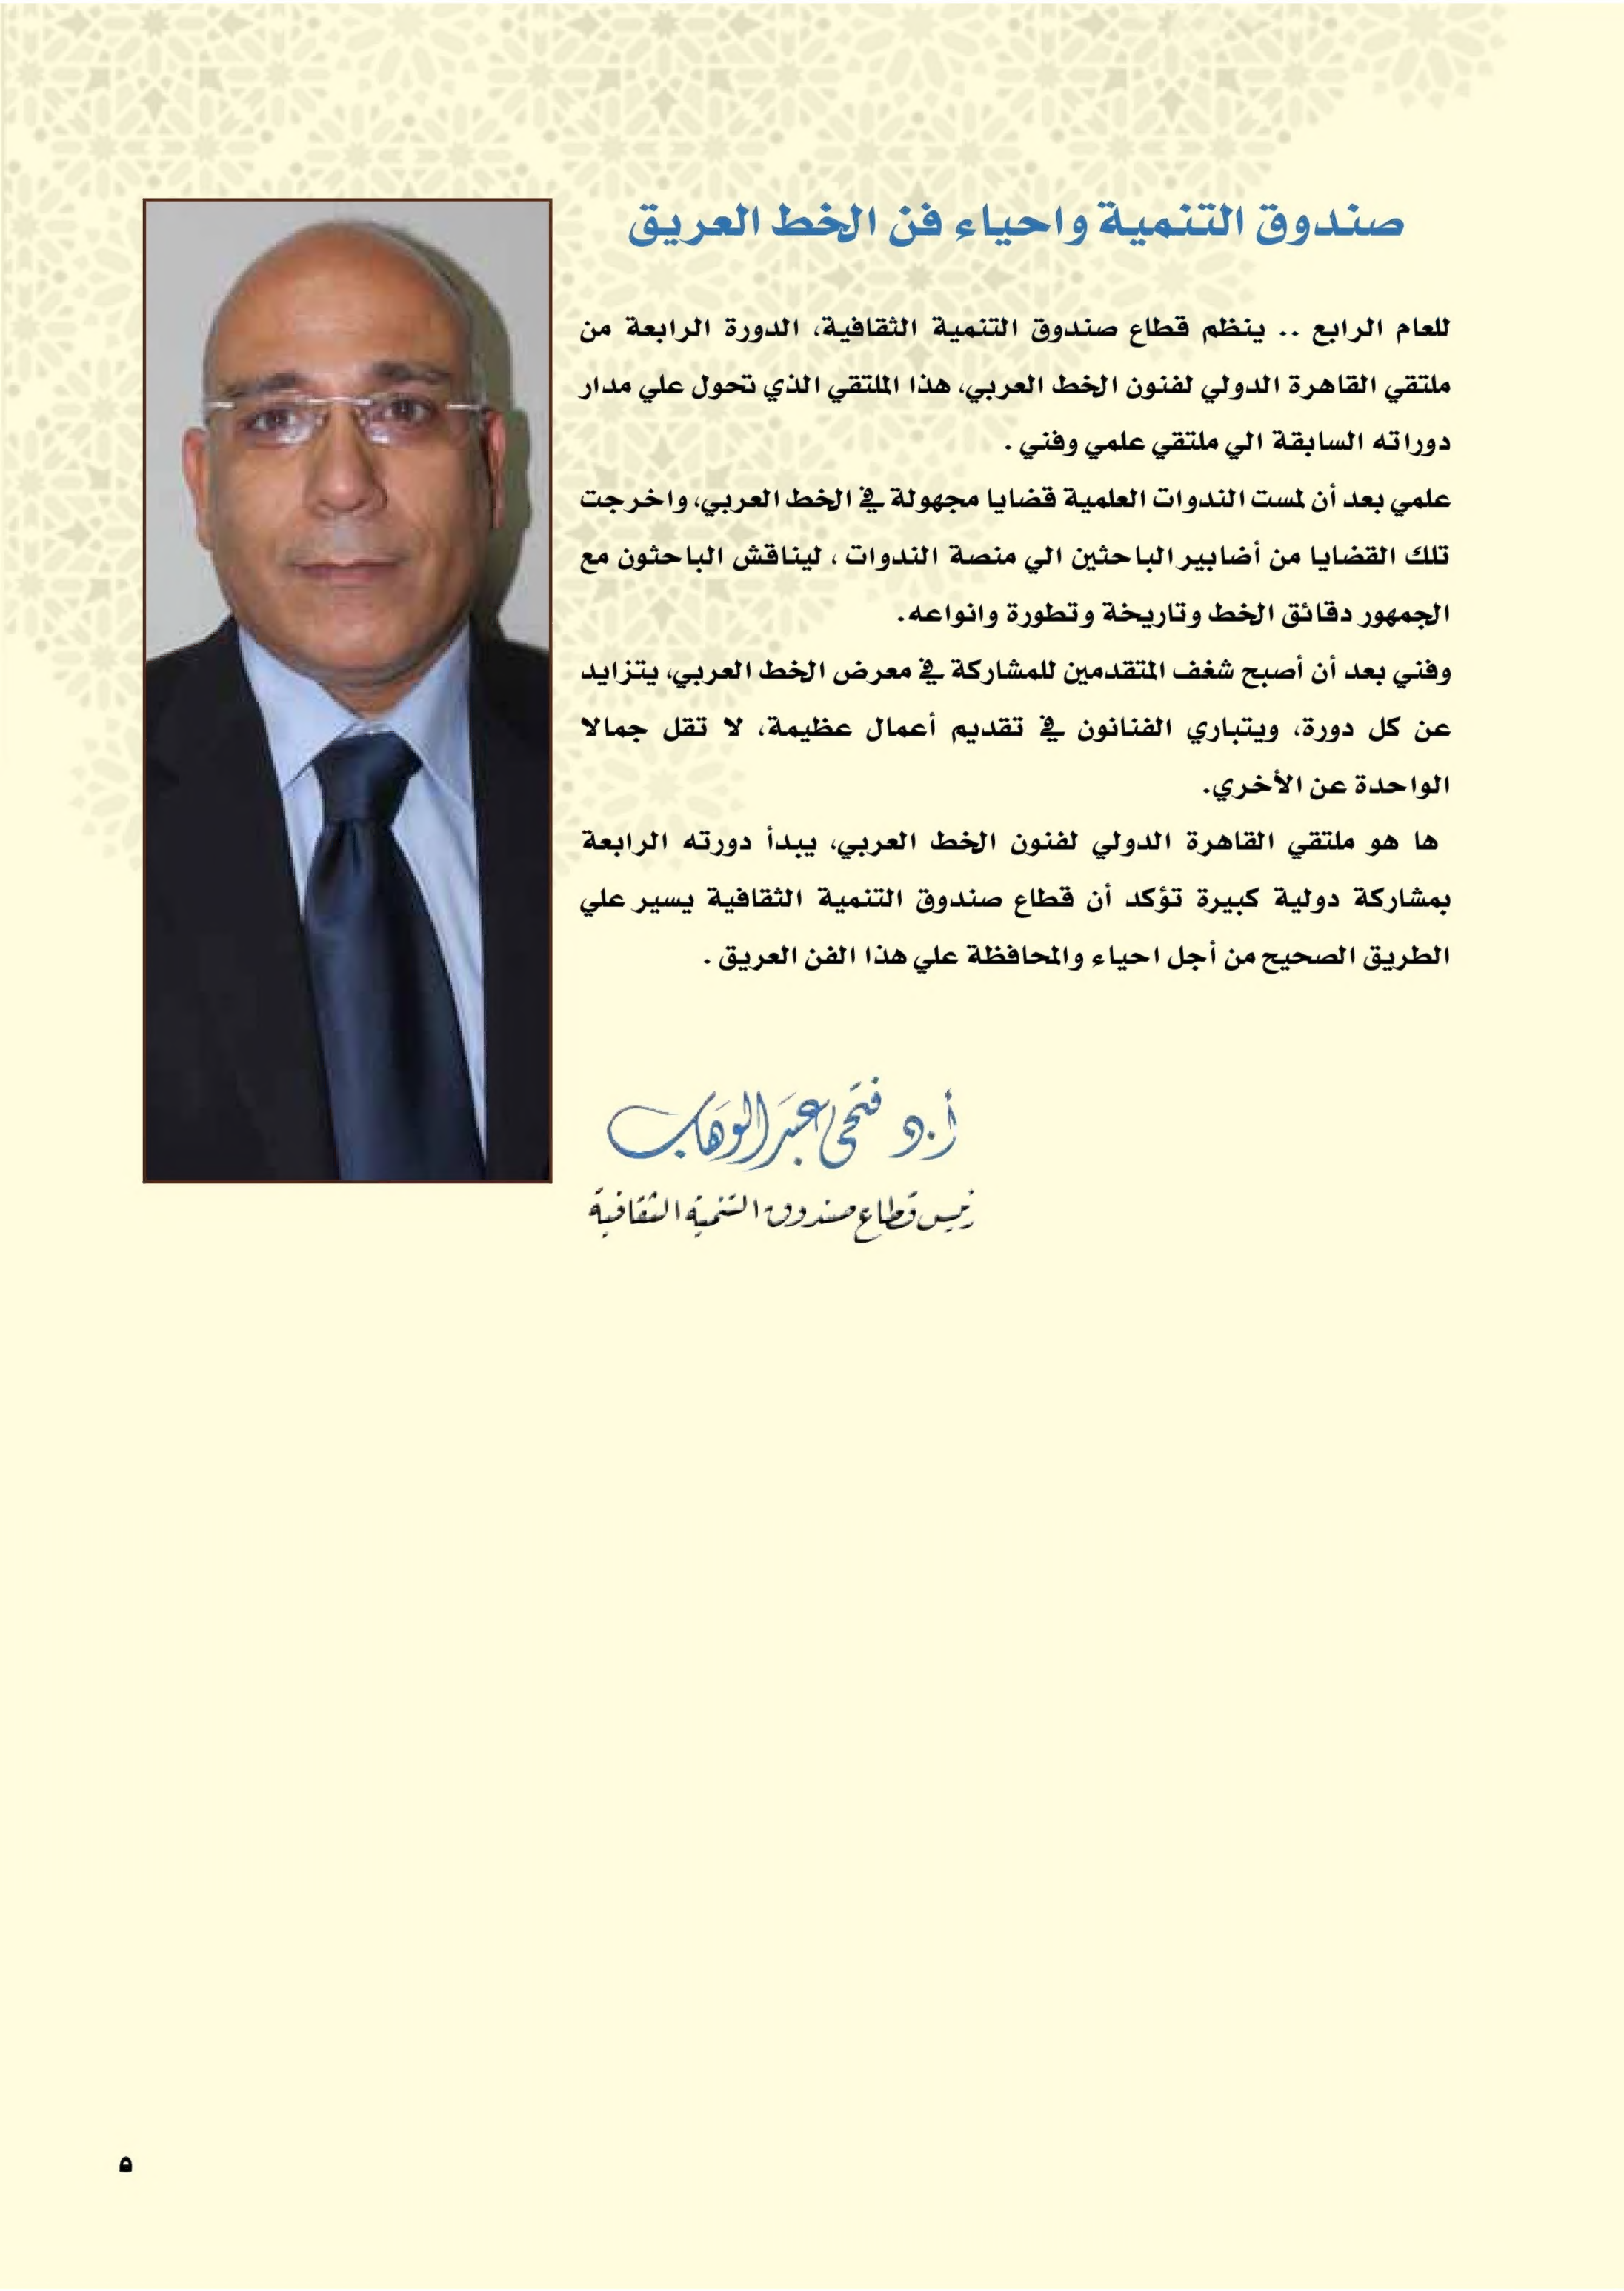 صندوق التنمية واحياء فن الخط العريق
للعام الرابع .. ينظم قطاع صندوق التنمية الثقافية، الدورة الرابعة من
ملتقي القاهرة الدولي لفنون الخط العربي، هذا الملتقي الذي تحول علي مدار
دوراته السابقة الي ملتقي علمي وفني .
علمي بعد أن لمست الندوات العلمية قضايا مجهولة في الخط العربي، واخرجت
تلك القضايا من أضابير الباحثين الي منصة الندوات ، ليناقش الباحثون مع
الجمهور دقائق الخط وتاريخة وتطورة وانواعه.
وفني بعد أن أصبح شغف المتقدمين للمشاركة في معرض الخط العربي، يتزايد
عن كل دورة، ويتباري الفنانون في تقديم أعمال عظيمة، لا تقل جمالا
الواحدة عن الأخري.
ها هو ملتقي القاهرة الدولي لفنون الخط العربي، يبدأ دورته الرابعة
بمشاركة دولية كبيرة تؤكد أن قطاع صندوق التنمية الثقافية يسير علي
الطريق الصحيح من أجل احياء والمحافظة علي هذا الفن العريق .
أ.د فتحى عبد الوهاب
رئيس قطاع صندوق التنمية الثقافية
٥